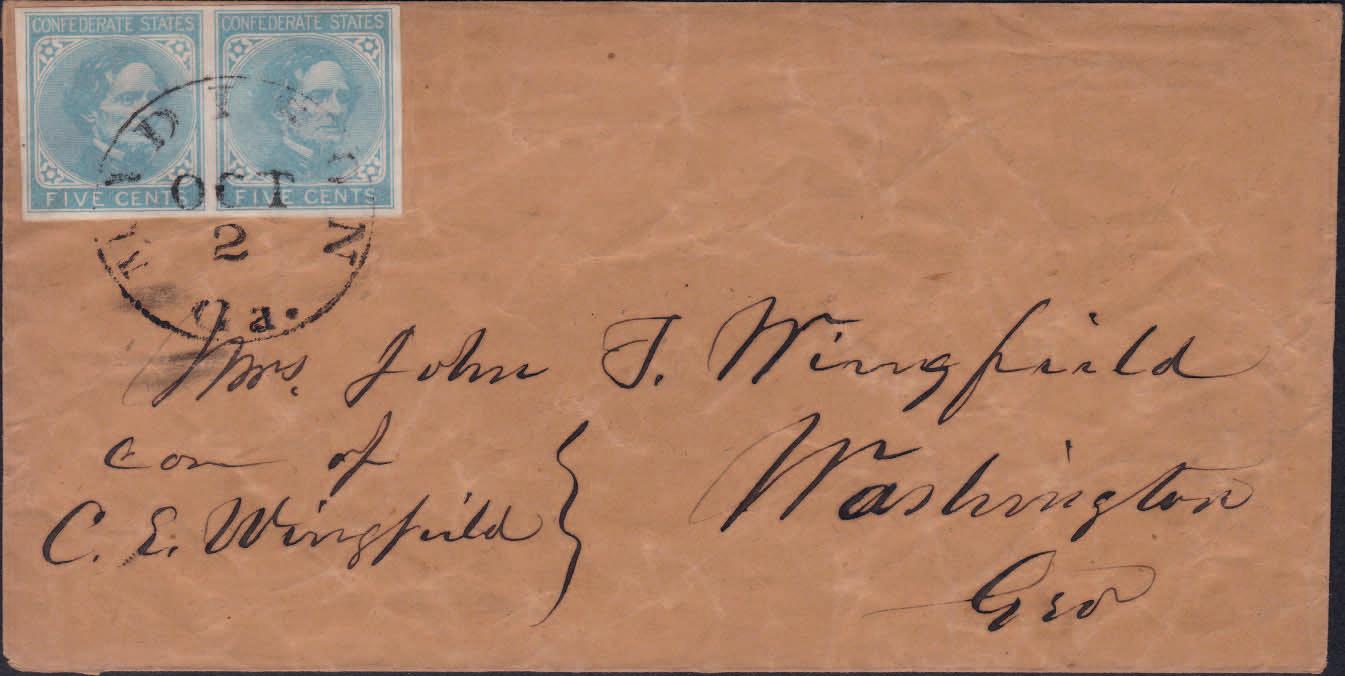 CONFEDERATE STATES CONFEDERATE STATES
FIVE CENTS FIVE CENTS
MADISON
OCT
2
Ga.
Mrs. John T. Wingfield
Care of
C. E. Wingfield
Washington
Geo